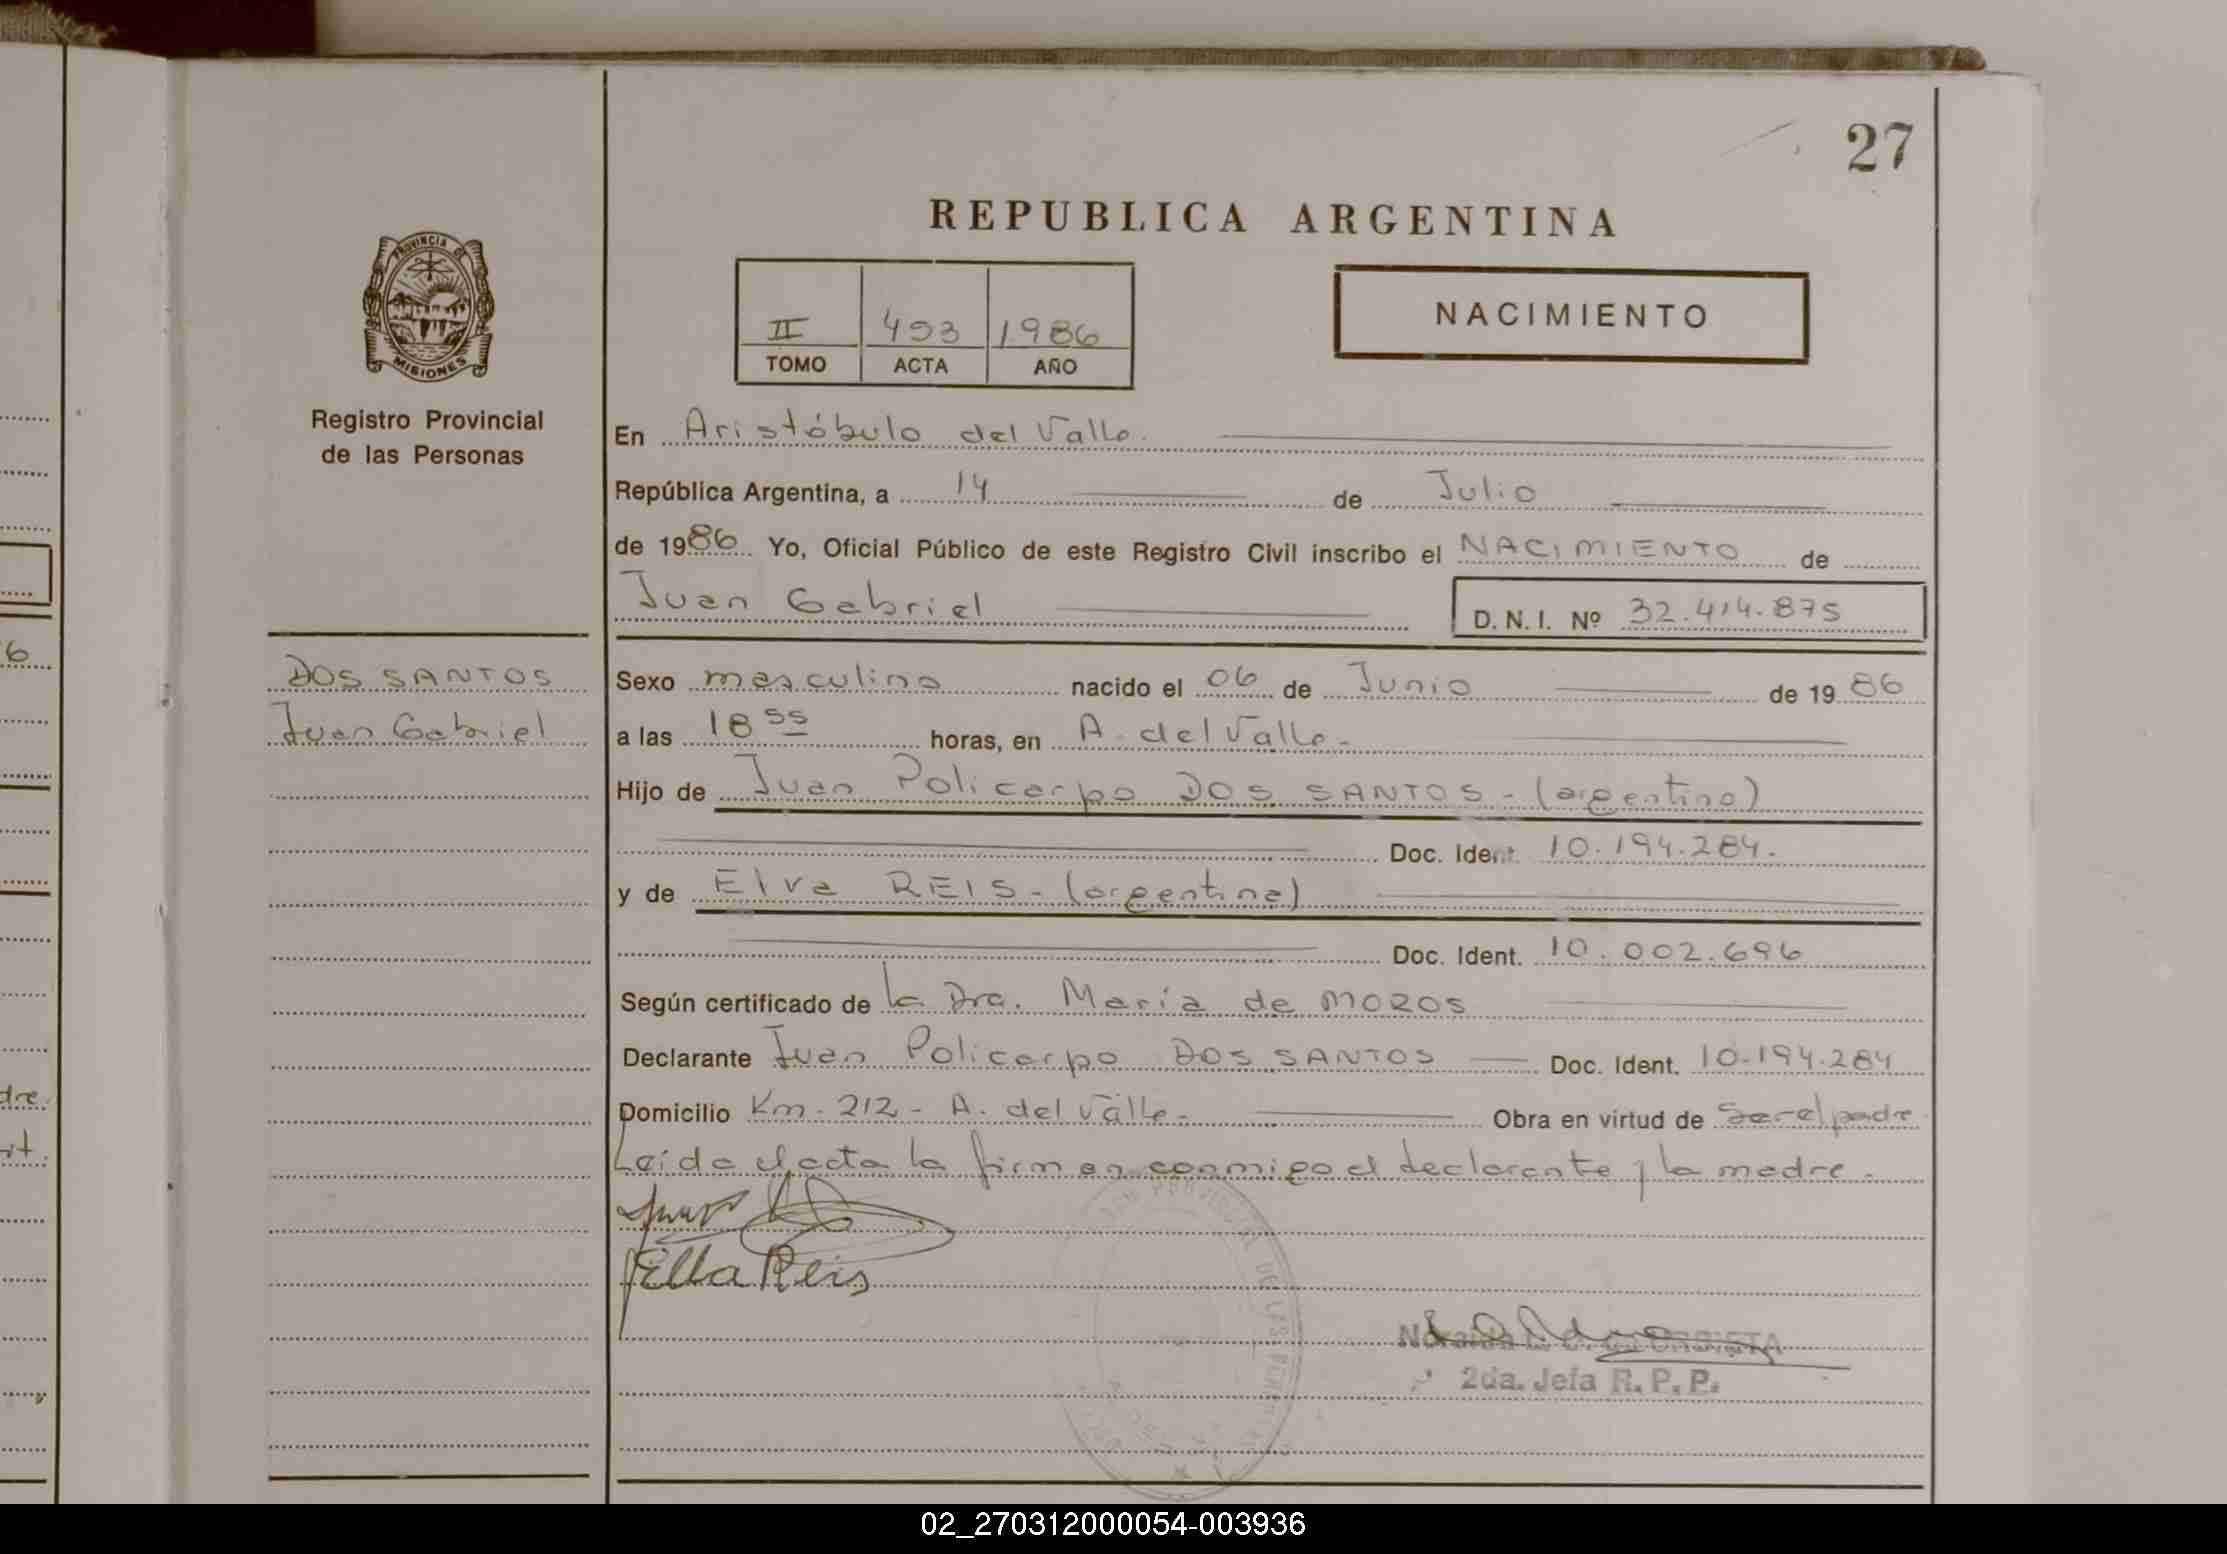 27
REPUBLICA ARGENTINA
PROVINCIA DE
MISIONES
II 493 1986
TOMO ACTA AÑO
NACIMIENTO
Registro Provincial
de las Personas
En Aristóbulo del Valle.
República Argentina, a 14 de Julio
de 1986 Yo, Oficial Público de este Registro Civil inscribo el NACIMIENTO de
Juan Gabriel D.N.I. Nº 32.414.875
DOS SANTOS
Juan Gabriel
Sexo masculino nacido el 06 de Junio de 1986
a las 18 55 horas, en A. del Valle.-
Hijo de Juan Policarpo DOS SANTOS - (argentino)
Doc. Ident. 10.194.284.
y de Elva REIS - (argentina)
Doc. Ident. 10.002.696
Según certificado de la Dra. María de MOROS
Declarante Juan Policarpo DOS SANTOS Doc. Ident. 10.194.284
Domicilio Km. 212 - A. del Valle.- Obra en virtud de Ser el padre
Leída el acta la firman conmigo el declarante y la madre.-
Elba Reis
2da. Jefa R. P. P.
6
dre.
02_270312000054-003936